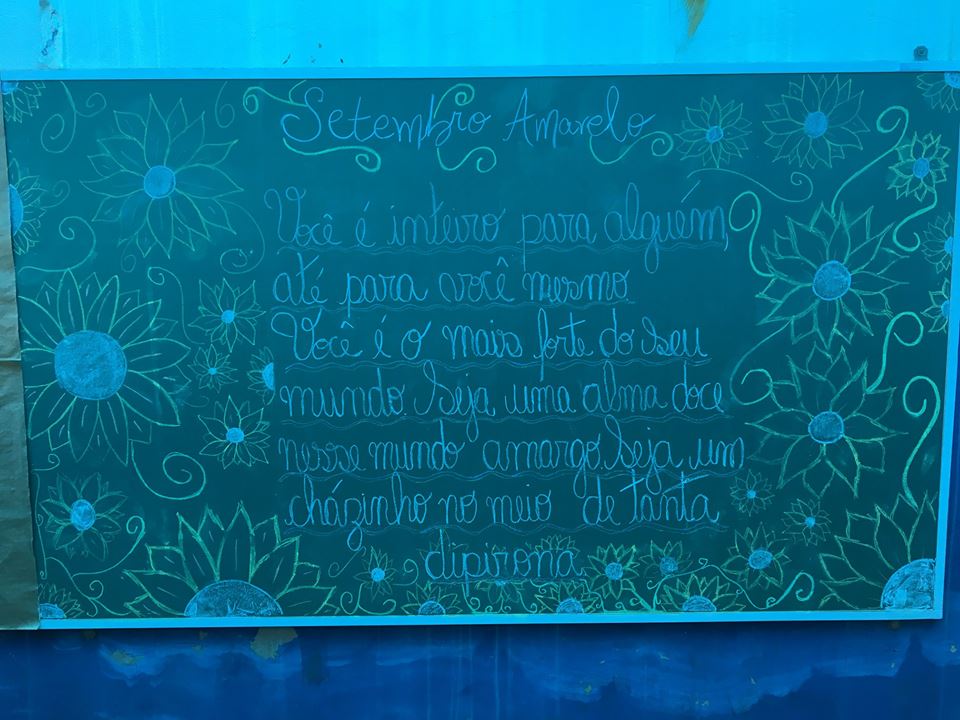 Setembro Amarelo
Você é inteiro para alguém,
até para você mesmo.
Você é o mais forte do seu
mundo. Seja uma alma doce
nesse mundo amargo. Seja um
cházinho no meio de tanta
dipirona.